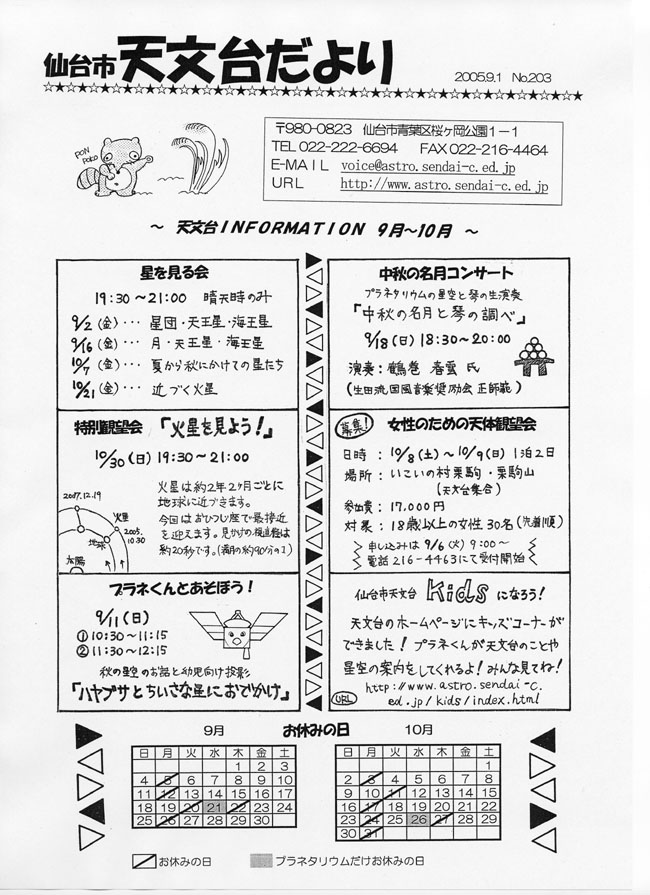 仙台市 天文台だより
2005.9.1 No.203
☆★☆★☆★☆★☆★☆★☆★☆★☆★☆★☆★☆★☆★☆★☆★☆★☆★☆★☆★☆★
PON POKO
〒980-0823 仙台市青葉区桜ヶ岡公園1-1
TEL 022-222-6694 FAX 022-216-4464
E-MAIL voice@astro.sendai-c.ed.jp
URL http://www.astro.sendai-c.ed.jp
～ 天文台INFORMATION 9月～10月 ～
星を見る会
19:30～21:00 晴天時のみ
9/2(金)・・・ 星団・天王星・海王星
9/16(金)・・・ 月・天王星・海王星
10/7(金)・・・ 夏から秋にかけての星たち
10/21(金)・・・ 近づく火星
中秋の名月コンサート
プラネタリウムの星空と琴の生演奏
「中秋の名月と琴の調べ」
9/18(日) 18:30～20:00
演奏:鶴巻 春雲 氏
(生田流国風音楽奨励会 正師範)
特別観望会 「火星を見よう!」
10/30(日) 19:30～21:00
火星は約2年2ヶ月ごとに
地球に近づきます。
今回はおひつじ座で最接近
を迎えます。見かけの視直径は
約20秒です。(満月の約90分の1)
2007.12.19
火星
2005.
10.30
地球
太陽
募集!
女性のための天体観望会
日時 : 10/8(土)～10/9(日) 1泊2日
場所 : いこいの村栗駒・栗駒山
(天文台集合)
参加費 : 17,000円
対象 : 18歳以上の女性30名(先着順)
申し込みは 9/6(火) 9:00～
電話 216-4463にて受付開始
プラネくんとあそぼう!
9/11(日)
①10:30～11:15
②11:30～12:15
秋の星空のお話と幼児向け投影
「ハヤブサとちいさな星におでかけ」
仙台市天文台 Kids になろう!
天文台のホームページにキッズコーナーが
できました! プラネくんが天文台のことや
星空の案内をしてくれるよ! みんな見てね!
http://www.astro.sendai-c.
URL ed.jp/kids/index.html
9月 お休みの日 10月
日 月 火 水 木 金 土
1 2 3
4 5 6 7 8 9 10
11 12 13 14 15 16 17
18 19 20 21 22 23 24
25 26 27 28 29 30
日 月 火 水 木 金 土
1
2 3 4 5 6 7 8
9 10 11 12 13 14 15
16 17 18 19 20 21 22
23 24 25 26 27 28 29
30 31
お休みの日 プラネタリウムだけお休みの日